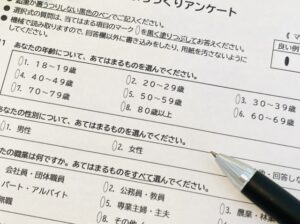 づくりアンケート
裏うつりしない黒色のペンでご記入ください。
選択式の質問は、当てはまる項目のマーク0を黒く塗りつぶしてお答えください。
機械で読み取りますので、回答欄以外に書き込みをしたり、用紙を汚さないように
してください。
良い例
あなたの年齢について、あてはまるものを選んでください。
1. 18～19歳 2. 20～29歳 3. 30～39歳
4. 40～49歳 5. 50～59歳 6. 60～69歳
7. 70～79歳 8. 80歳以上
あなたの性別について、あてはまるものを選んでください。
1. 男性 2. 女性
なたの職業は何ですか。あてはまるものをすべて選んでください。
会社員・団体職員 2. 公務員・教員 3. 農業・林業
パート・アルバイト 5. 専業主婦・主夫
無職 8. その他